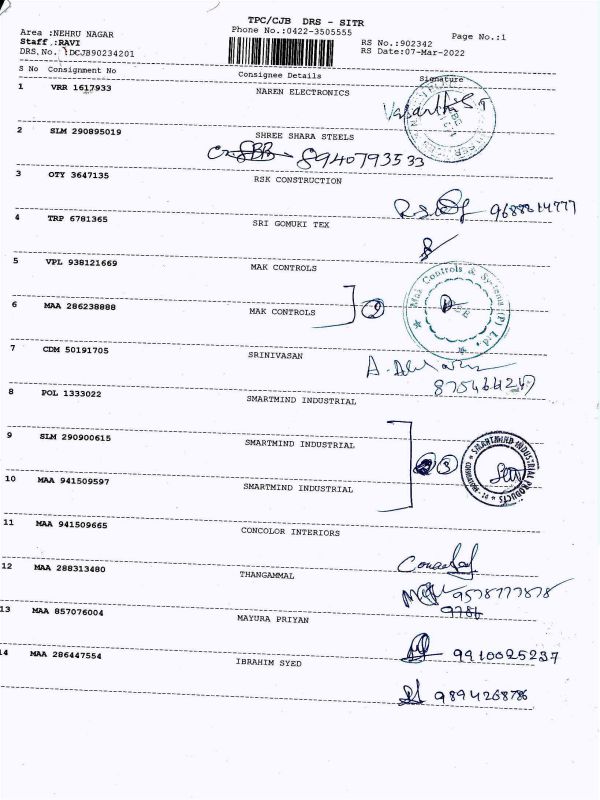 TPC/CJB DRS - SITR
Area :NEHRU NAGAR
Phone No.:0422-3505555
Page No.:1
Staff :RAVI
RS No.:902342
DRS.No. :DCJB90234201
RS Date:07-Mar-2022
S No Consignment No Consignee Details Signature
1 VRR 1617933 NAREN ELECTRONICS
2 SLM 290895019 SHREE SHARA STEELS
8940793533
3 OTY 3647135 RSK CONSTRUCTION
4 TRP 6781365 SRI GOMUKI TEX
5 VPL 938121669 MAK CONTROLS
Mak Controls & Systems (P) Ltd.
6 MAA 286238888 MAK CONTROLS
7 CDM 50191705 SRINIVASAN
8 POL 1333022 SMARTMIND INDUSTRIAL
9 SLM 290900615 SMARTMIND INDUSTRIAL
3
SMARTMIND INDUSTRIAL PRODUCTS
10 MAA 941509597 SMARTMIND INDUSTRIAL
11 MAA 941509665 CONCOLOR INTERIORS
12 MAA 288313480 THANGAMMAL
9578777878
9786
13 MAA 857076004 MAYURA PRIYAN
9910025237
14 MAA 286447554 IBRAHIM SYED
9894268786